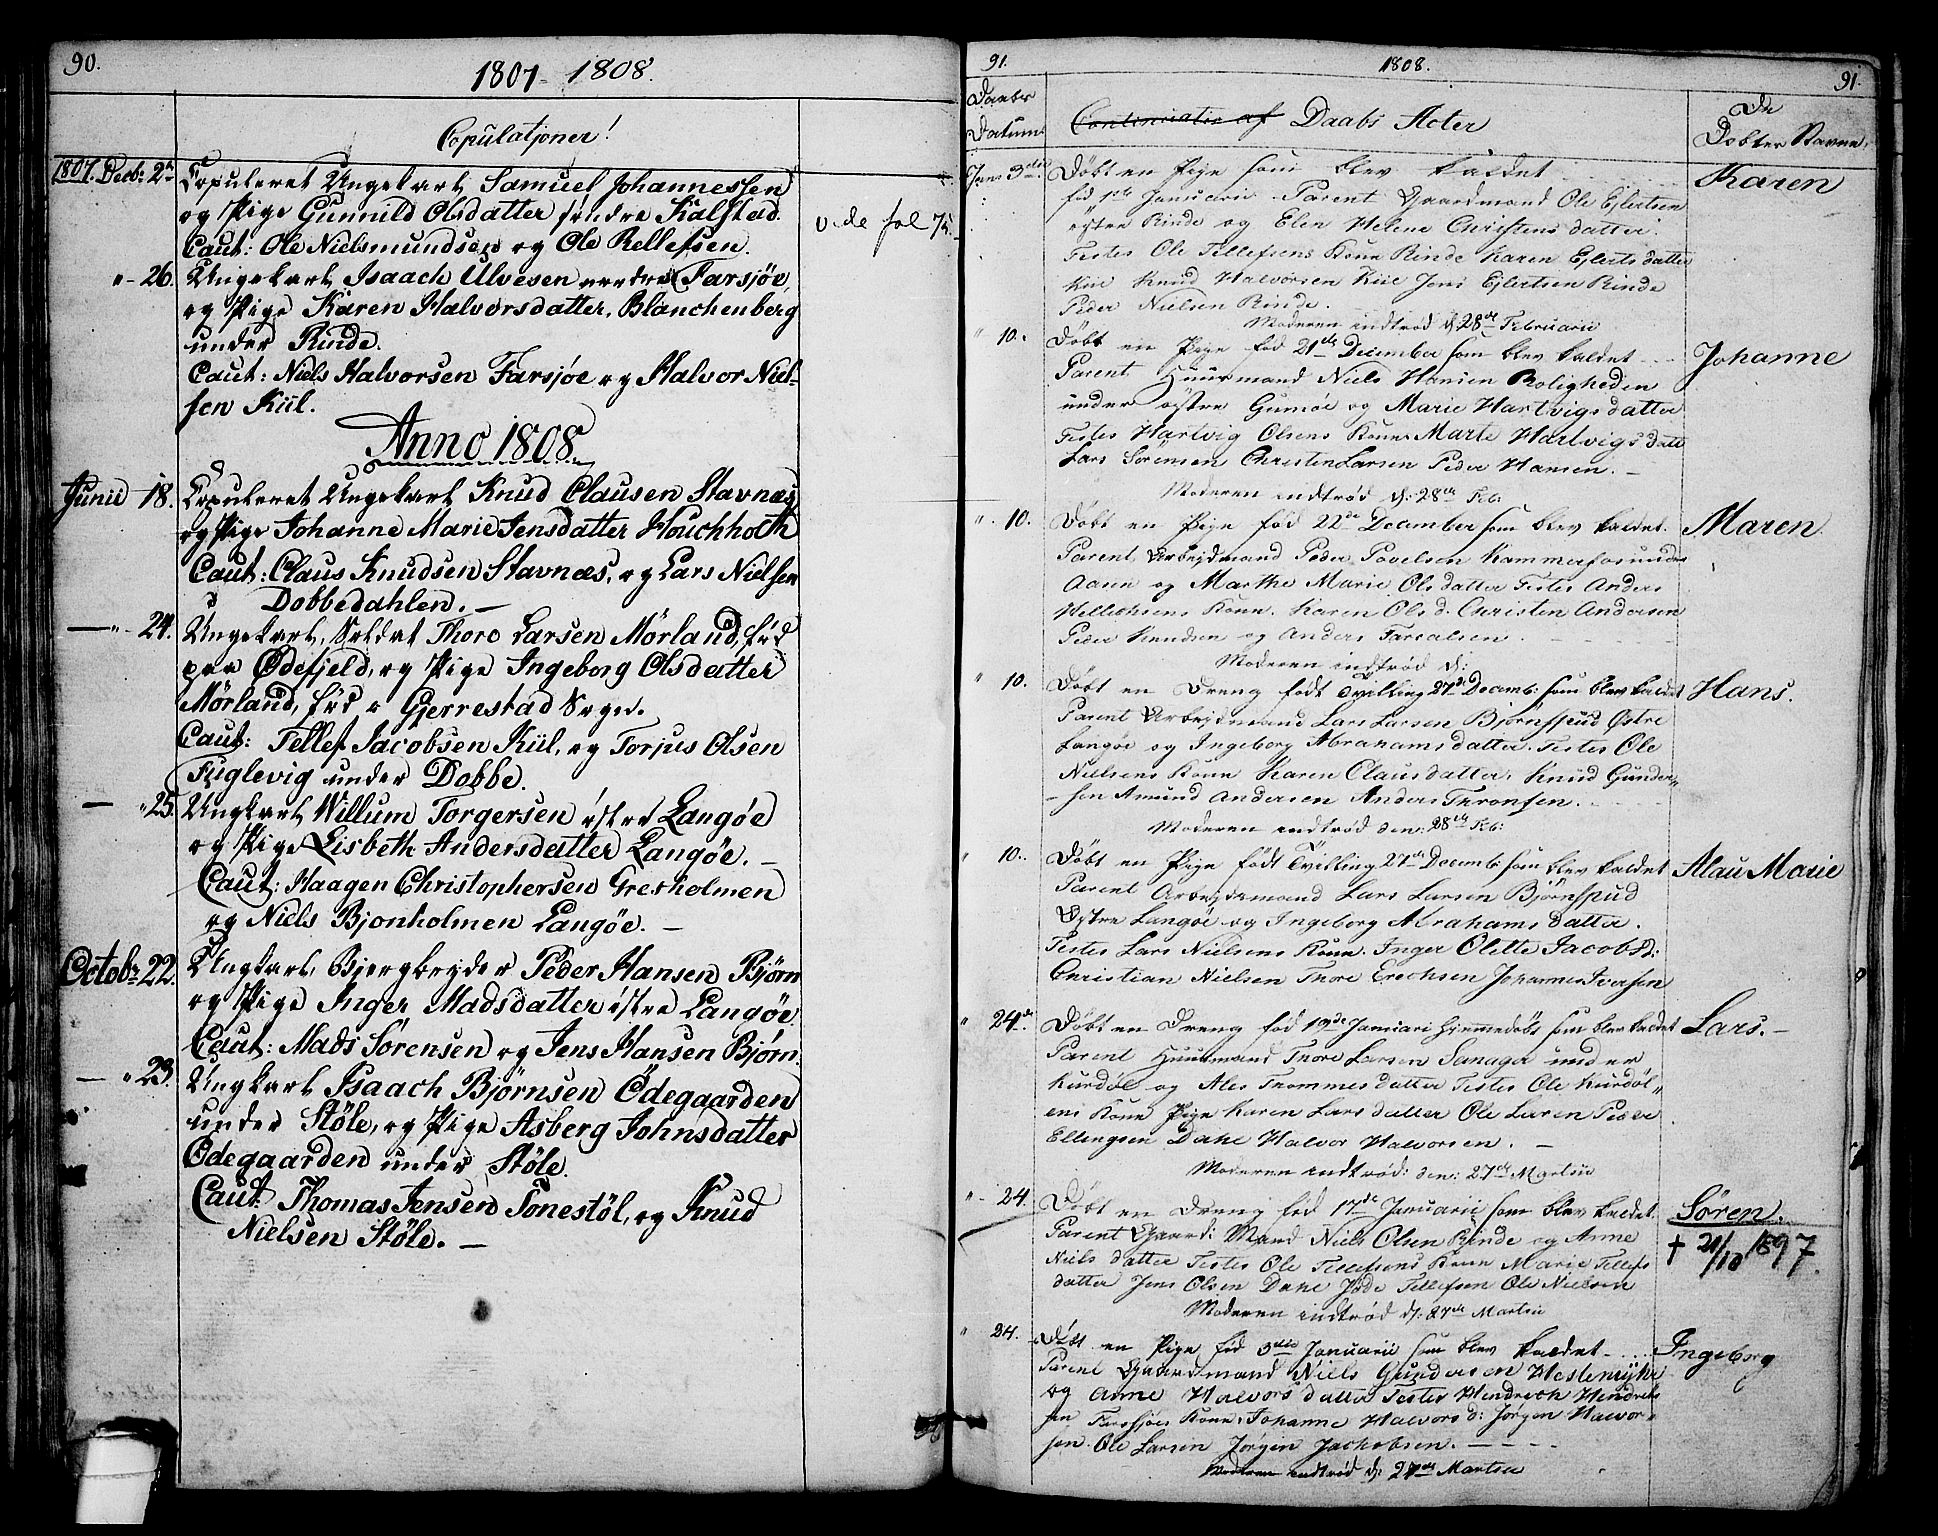 90.
1807 - 1808.
Copulatjoner!
1807. Decb: 2den Copuleret Ungekarl Samuel Johannessen
og Pige Gunnild Olsdatter søndre Kalstad.
Caut: Ole Nielsmundsøn og Ole Rellefsen.
vide fol 75.
" - 26. Ungekarl Isaach Ulvesen nordre Farsjøe,
og Pige Karen Halvorsdatter, Blanchenberg
under Rinde.
Caut: Niels Halvorsen Farsjøe og Halvor Niel-
sen Kiil.
Anno 1808
Junii 18. Copuleret Ungekarl Knud Clausen Stavnæs
og Pige Johanne Marie Jensdatter Houchholth
Caut: Claus Knudsen Stavnæs, og Lars Nielsen
Dobbedahlen. -
— " - 24. Ungekarl, Soldat Thore Larsen Mørland, fød
paa Ødefjeld, og Pige Ingeborg Olsdatter
Mørland, fød i Gjerrestad Sogn.
Caut: Tellef Jacobsen Kiil, og Torjus Olsen
Fuglevig under Dobbe.
— " 25. Ungkarl Willum Torgersen østre Langøe
og Pige Lisbeth Andersdatter Langøe. -
Caut: Haagen Christophersen Gresholmen
og Niels Bjonholmen Langøe. -
Octob: 22. Ungkarl, Bjergbryder Peder Hansen Bjørn
og Pige Inger Madsdatter østre Langøe.
Caut: Mads Sørensen og Jens Hansen Bjørn.
— " 23. Ungkarl Isaach Bjørnsen Ødegaarden
under Støle, og Pige Asberg Johnsdatter
Ødegaarden under Støle.
Caut: Thomas Jensen Tonestøl, og Knud
Nielsen Støle. -
91. 1808. 91.
Daabs Datum Continuatio af Daabs Acter De Døbtes Navne.
Jan: 3die Døbt en Pige som blev kaldet Karen
fød 1ste Januarii Parent Gaardmand Ole Ejlertsen
østre Rinde og Elen Helene Christensdatter.
Testes Ole Tellefsens Kone Rinde Karen Ejlertsdatter
Kiil Knud Halvorsen Kiil Jens Ejlertsen Rinde
Peder Nielsen Rinde.
Moderen indtrød d. 28de Februarii
" 10. Døbt en Pige fød 21de December som blev kaldet Johanne
Parent Huusmand Niels Hansen Roligheden
under østre Gumøe og Marie Hartvigsdatter
Testes Hartvig Olsens Kone Marte Hartvigsdatt
Lars Sørensen Christen Larsen Peder Hansen. -
Moderen indtrød d: 28de Feb:
" 10. Døbt en Pige fød 22de December som blev kaldet. Maren.
Parent Arbejdmand Peder Povelsen Kammerfos under
Aaen og Marthe Marie Olsdatter Testes Anders
Kone. Karen Olsd. Christen Andersen
Peder Knudsen og Anders
Moderen indtrød d:
" 10. Døbt en Dreng født Tvilling 27de Decemb: som blev kaldet Hans.
Parent Arbejdmand Lars Larsen Bjørnspud Østre
Langøe og Ingeborg Abrahamsdatter. Testes Ole
Nielsens Kone Karen Clausdatter, Knud Gunder-
-sen Amund Andersen Anders Thronsen.
Moderen indtrød den: 28de Feb:
" 10. Døbt en Pige født Tvilling 27de Decemb: som blev kaldet Alau Marie
Parent Arbejdsmand Lars Larsen Bjørnspud
Østre Langøe og Ingeborg Abrahamsdatter.
Testes Lars Nielsens Kone. Inger Olette Jacobsd:
Christian Nielsen Thore Erichsen Johannes Iversen
" 24de Døbt en Dreng fød 19de Januari hjemmedøbt som blev kaldet Lars. -
Parent Huusmand Thore Larsen under
Kurdøl og Ales Thommesdatter Testes Ole Kurdøl-
ens Kone Pige Karen Larsdatter Ole Larsen Peder
Ellingsen Dahe Halvor Halvorsen. -
Moderen indtrød: den: 27de Martii
" - 24. Døbt en Dreng fød 17de Januarii som blev kaldet. Søren.
Parent Gaard: Mand Niels Olsen Rinde og Anne † 21/10 1897.
Nielsdatter Testes Ole Tellefsens Kone Marie Tellefs
datter Jens Olsen Dahe Tellefsen Ole Nielsen
Moderen indtrød d: 27de Martii
" 24. Døbt en Pige fød 3die Januarii som blev kaldet Ingeborg
Parent Gaardmand Niels Gundersen
og Anne Halvorsdatter Testes Hendrich Hendrik
sen Farsjøes Kone. Johanne Halvorsd: Jørgen Halvor-
sen. Ole Larsen Jørgen Jachobsen. - - - -
Moderen indtrød d: 27de Martii